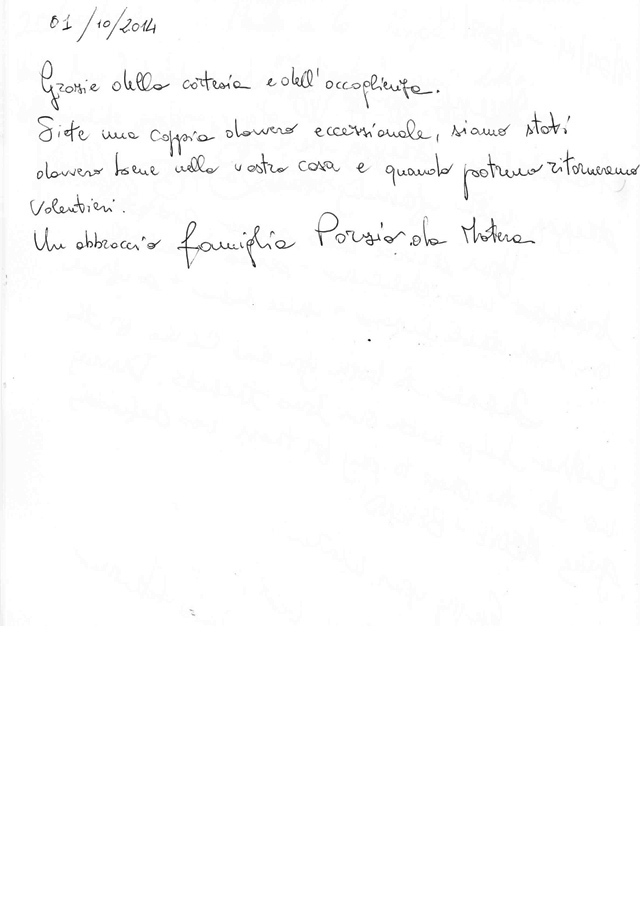 01/10/2014
Grazie della cortesia e dell'accoglienza.
Siete una coppia davvero eccezzionale, siamo stati
davvero bene nella vostra casa e quando potremo ritorneremo
volentieri.
Un abbraccio famiglia Porzio da Matera